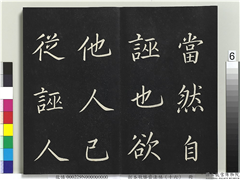 當然自
誣也欲
他人己
從誣人
6